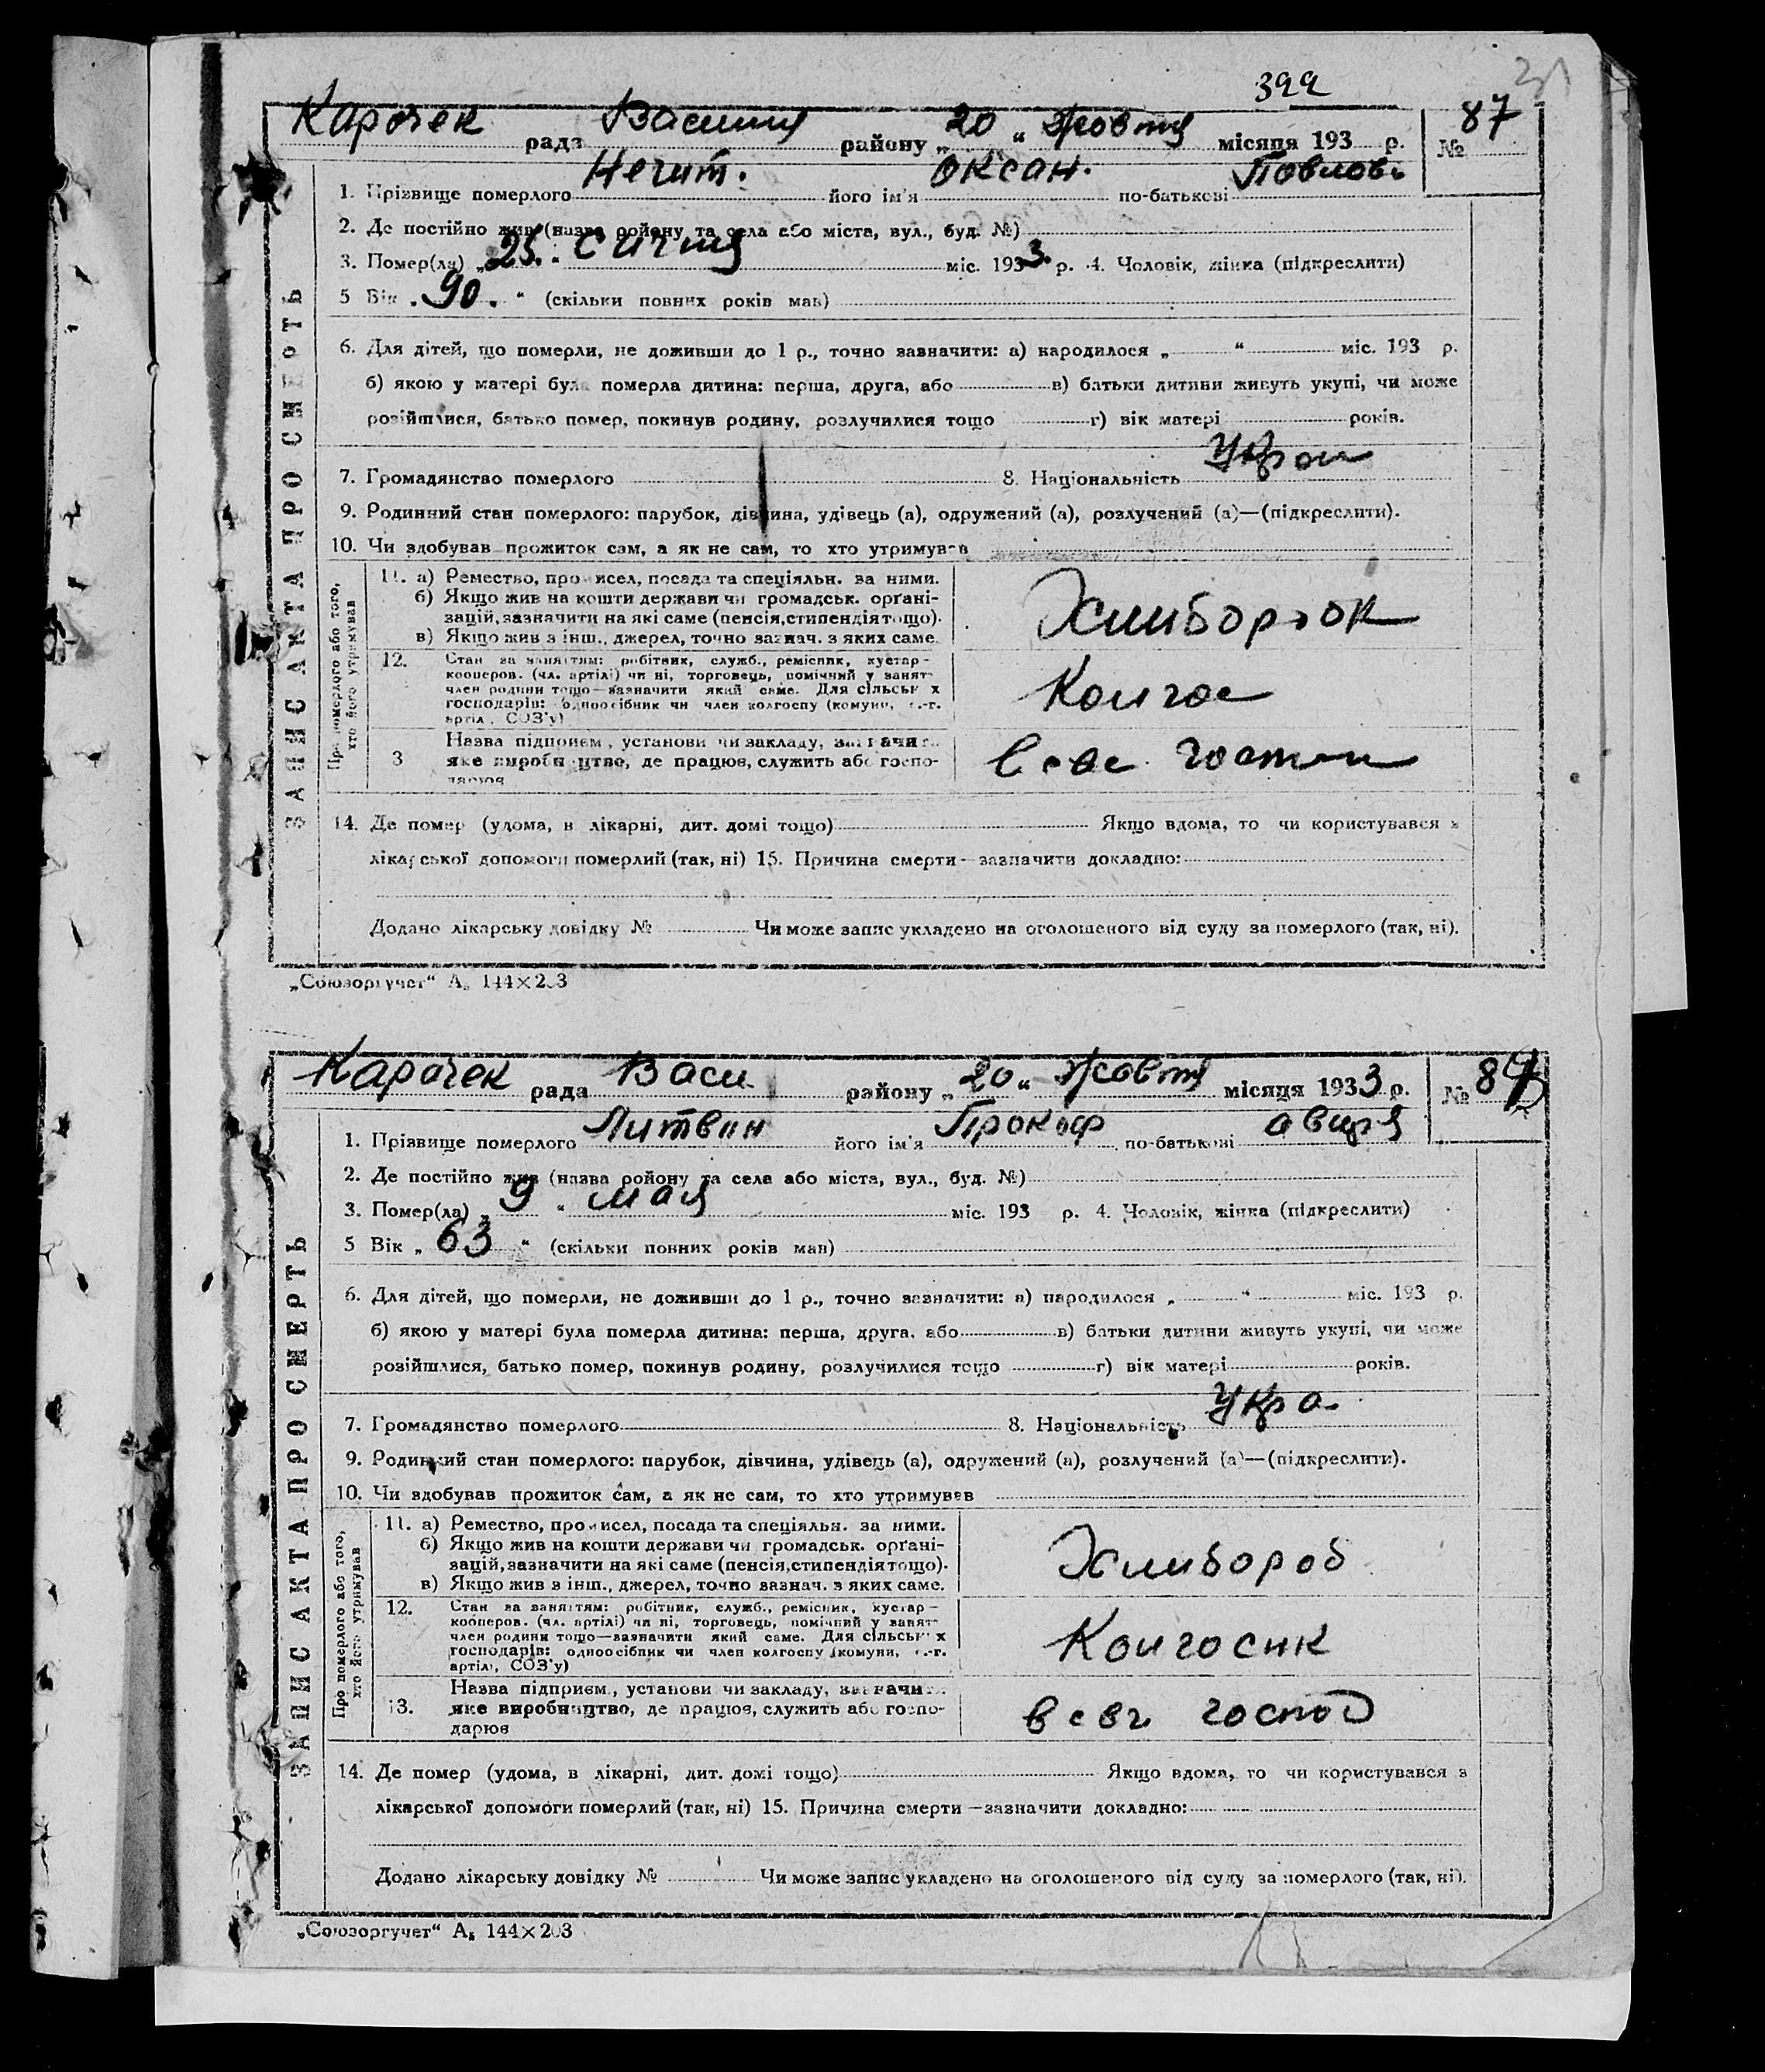 399
Карачек рада Василия району „20“ жовтня місяця 193 р. № 87
1. Прізвище померлого Нечит. його ім'я Оксан. по-батькові Повлов
2. Де постійно жив (назва ройону та села або міста, вул., буд. №)
3. Помер(ла) „25.“ сичня міс. 1933. р. 4. Чоловік, жінка (підкреслити)
5 Вік „90.“ (скільки повних років мав)
6. Для дітей, що померли, не доживши до 1 р., точно зазначити: а) народилося „ “ міс. 193 р.
б) якою у матері була померла дитина: перша, друга, або в) батьки дитини живуть укупі, чи може
розійшлися, батько помер, покинув родину, розлучилися тощо г) вік матері років.
7. Громадянство померлого 8. Національність Украи
9. Родинний стан померлого: парубок, дівчина, удівець (а), одружений (а), розлучений (а)—(підкреслити).
10. Чи здобував прожиток сам, а як не сам, то хто утримував
ЗАПИС АКТА ПРО СМЕРТЬ
Про померлого або того,
хто його утримував
11. а) Ремество, промисел, посада та спеціяльн. за ними.
б) Якщо жив на кошти держави чи громадськ. орґані-
зацій, зазначити на які саме (пенсія, стипендія тощо).
в) Якщо жив з інш., джерел, точно зазнач. з яких саме.
12. Стан за заняттям: робітник, служб., ремісник, кустар-
кооперов. (чл. артілі) чи ні, торговець, помічний у занят-
член родини тощо—зазначити який саме. Для сільськ х
господарів: одноосібник чи член колгоспу (комуни, с.-г.
артіл, СОЗ'у)
Колгос
3 Назва підприєм., установи чи закладу, зазначи
яке виробництво, де працює, служить або госпо-
дарює
14. Де помер (удома, в лікарні, дит. домі тощо) Якщо вдома, то чи користувався з
лікарської допомоги померлий (так, ні) 15. Причина смерти—зазначити докладно:
Додано лікарську довідку № Чи може запис укладено на оголошеного від суду за померлого (так, ні).
„Союзоргучет“ А₅ 144×203
Карачек рада Васи району „20“ жовтня місяця 1933 р. №
1. Прізвище померлого Литвин його ім'я Прокоф по-батькові
2. Де постійно жив (назва ройону та села або міста, вул., буд. №)
3. Помер(ла) „9“ мая міс. 193 р. 4. Чоловік, жінка (підкреслити)
5 Вік „63“ (скільки повних років мав)
6. Для дітей, що померли, не доживши до 1 р., точно зазначити: а) народилося „ “ міс. 193 р.
б) якою у матері була померла дитина: перша, друга, або в) батьки дитини живуть укупі, чи може
розійшлися, батько помер, покинув родину, розлучилися тощо г) вік матері років.
7. Громадянство померлого 8. Національність Укра.
9. Родинний стан померлого: парубок, дівчина, удівець (а), одружений (а), розлучений (а)—(підкреслити).
10. Чи здобував прожиток сам, а як не сам, то хто утримував
ЗАПИС АКТА ПРО СМЕРТЬ
Про померлого або того,
хто його утримував
11. а) Ремество, промисел, посада та спеціяльн. за ними.
б) Якщо жив на кошти держави чи громадськ. орґані-
зацій, зазначити на які саме (пенсія, стипендія тощо).
в) Якщо жив з інш., джерел, точно зазнач. з яких саме.
Хлибороб
12. Стан за заняттям: робітник, служб., ремісник, кустар-
кооперов. (чл. артілі) чи ні, торговець, помічний у занят-
член родини тощо—зазначити який саме. Для сільськ х
господарів: одноосібник чи член колгоспу (комуни, с.-г.
артілі, СОЗ'у)
Колгосник
13. Назва підприєм., установи чи закладу, зазначи
яке виробництво, де працює, служить або госпо-
дарює
в свг господ
14. Де помер (удома, в лікарні, дит. домі тощо) Якщо вдома, то чи користувався з
лікарської допомоги померлий (так, ні) 15. Причина смерти—зазначити докладно:
Додано лікарську довідку № Чи може запис укладено на оголошеного від суду за померлого (так, ні).
„Союзоргучет“ А₅ 144×203